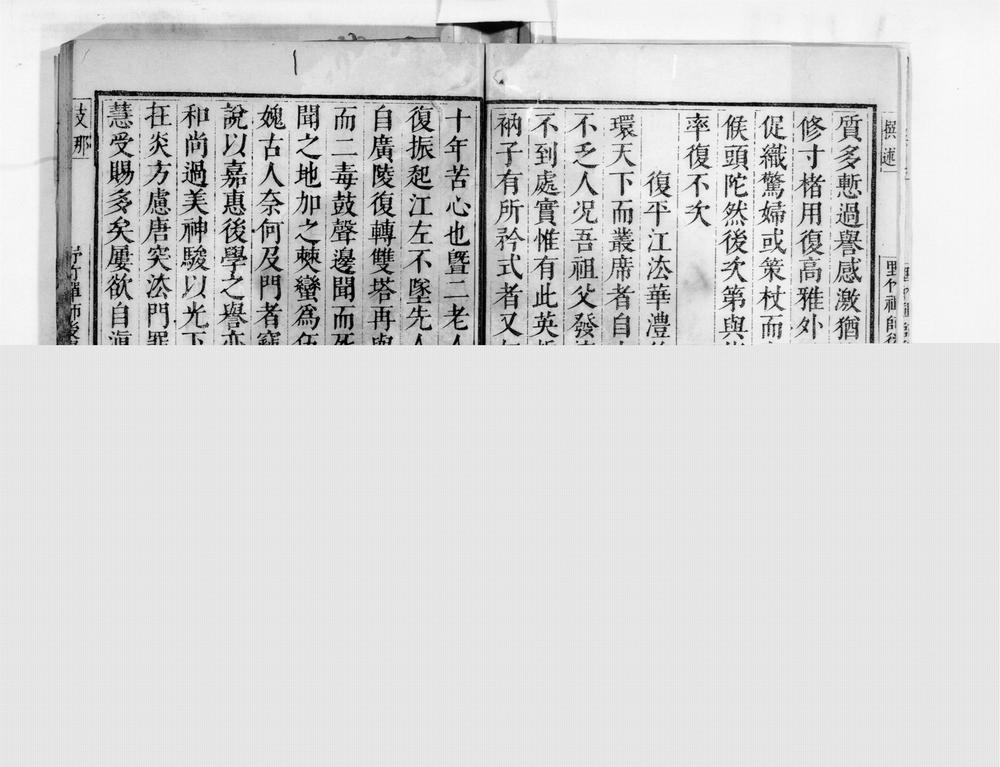 撰述
質多慙過譽感激猶
修寸楮用復高雅外
促織驚婦或策杖而
候頭陀然後次第與
率復不次
復平江法華澧
環天下而叢席者自
不乏人况吾祖父發
不到處實惟有此英
衲子有所矜式者又
十年苦心也暨二老人
復振起江左不墜先人
自廣陵復轉雙塔再
而二毒鼓聲邊聞而死
聞之地加之棘蠻爲伍
媿古人奈何及門者
說以嘉惠後學之譽亦
和尚過美神駿以光下
在炎方慮唐突法門罪
慧受賜多矣屢欲自滇
支那